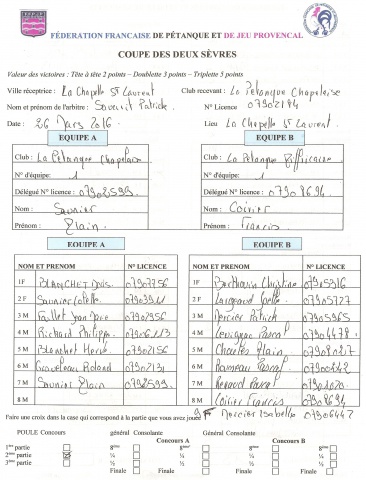 FÉDERATION FRANCAISE DE PÉTANQUE ET DE JEU PROVENCAL
COUPE DES DEUX SÈVRES
Valeur des victoires : Tête à tête 2 points – Doublette 3 points – Triplette 5 points
Ville réceptrice : La Chapelle St Laurent Club recevant : La Pétanque Chapelaise
Nom et prénom de l'arbitre : Patrick N° Licence 07902194
Date : 26 Mars 2016 Lieu La Chapelle St Laurent
EQUIPE A EQUIPE B
Club : La Pétanque Chapelaise Club : La Pétanque
N° d'équipe: 1 N° d'équipe: 1
Délégué N° licence : 07902599 Délégué N° licence : 07908694
Nom : Saunier Nom : Coirier
Prénom : Alain Prénom : Francis
EQUIPE A EQUIPE B
NOM ET PRENOM N° LICENCE NOM ET PRENOM N° LICENCE
1F BLANCHET 07907756 1F Christine 07905316
2 F Saunier 2 F Gaelle 07905727
3 M 07902956 3 M Mercier Patrick 07905965
4 M Richard Philippe 07906113 4 M Pascal 07904478
5 M Blanchet Hervé 07902156 5 M Charles Alain
6 M Roland 07902131 6 M Rameau
7 M Saunier Alain 07902599 7 M Renaud Pascal
8 M 8 M Coirier Francis 07908694
Faire une croix dans la case qui correspond à la partie que vous avez jouée 9F Mercier Isabelle 07906447
POULE Concours général Consolante Général Consolante
Concours A Concours B
1ère partie 8ème 8ème 8ème 8ème
2ème partie ¼ ¼ ¼ ¼
3ème partie ½ ½ ½ ½
Finale Finale Finale Finale